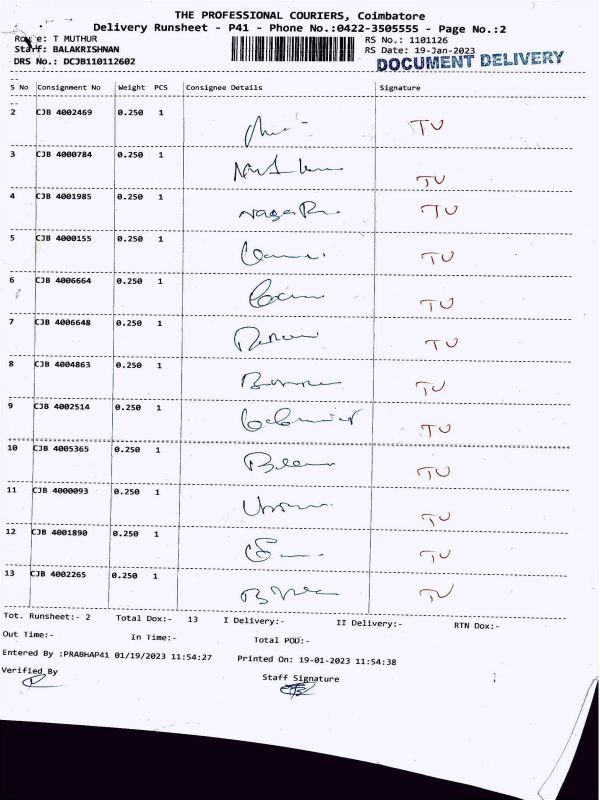 THE PROFESSIONAL COURIERS, Coimbatore
Delivery Runsheet - P41 - Phone No.:0422-3505555 - Page No.:2
T MUTHUR RS No.: 1101126
Staff: BALAKRISHNAN RS Date: 19-Jan-2023
DRS No.: DCJB110112602 DOCUMENT DELIVERY
S No Consignment No Weight PCS Consignee Details Signature
2 CJB 4002469 0.250 1 TU
3 CJB 4000784 0.250 1 TU
4 CJB 4001985 0.250 1 TU
5 CJB 4000155 0.250 1 TU
6 CJB 4006664 0.250 1 TU
7 CJB 4006648 0.250 1 TU
8 CJB 4004863 0.250 1 TU
9 CJB 4002514 0.250 1 TU
10 CJB 4005365 0.250 1 TU
11 CJB 4000093 0.250 1 TU
12 CJB 4001890 0.250 1 TU
13 CJB 4002265 0.250 1 TU
Tot. Runsheet:- 2 Total Dox:- 13 I Delivery:- II Delivery:- RTN Dox:-
Out Time:- In Time:- Total POD:-
Entered By :PRABHAP41 01/19/2023 11:54:27 Printed On: 19-01-2023 11:54:38
Verified By Staff Signature